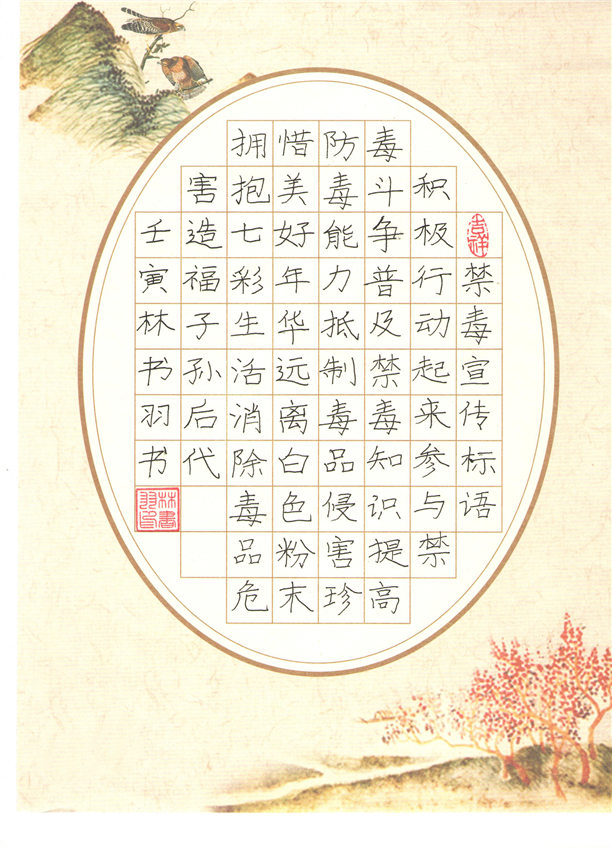 吉祥
禁毒宣传标语
积极行动起来参与禁
毒斗争普及禁毒知识提高
防毒能力抵制毒品侵害珍
惜美好年华远离白色粉末
拥抱七彩生活消除毒品危
害造福子孙后代
壬寅林书羽书
林書羽印